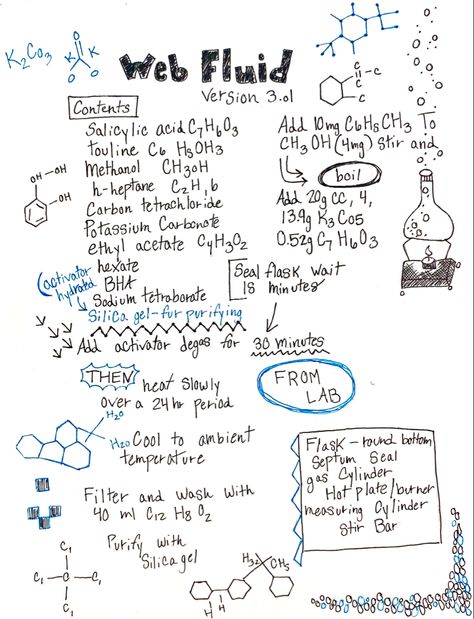 K2CO3
K K
Web Fluid
Version 3.01
Contents
Salicylic acid C7H6O3
touline C6 H5OH3
Methanol CH3OH
h-heptane C2H,6
Carbon tetrachloride
Potassium Carbonate
ethyl acetate C4H3O2
hexate
BHA
Sodium tetraborate
activator
hydrated
Silica gel-fur purifying
OH
OH
Add 10mg C6H5CH3 To
CH3OH (4mg) stir and
boil
Add 20g CC, 4,
13.9g K3CO5
0.52g C7H6O3
Seal flask wait
18 minutes
Add activator degas for 30 minutes
THEN heat slowly
over a 24 hr period
FROM
LAB
H2O
H2O Cool to ambient
temperature
Filter and wash with
40 ml C12 H8 O2
Purify with
Silica gel
Flask - round bottom
Septum Seal
gas Cylinder
Hot plate/burner
measuring Cylinder
Stir Bar
C1
C1 C C1
C1
H3C CH3
H H